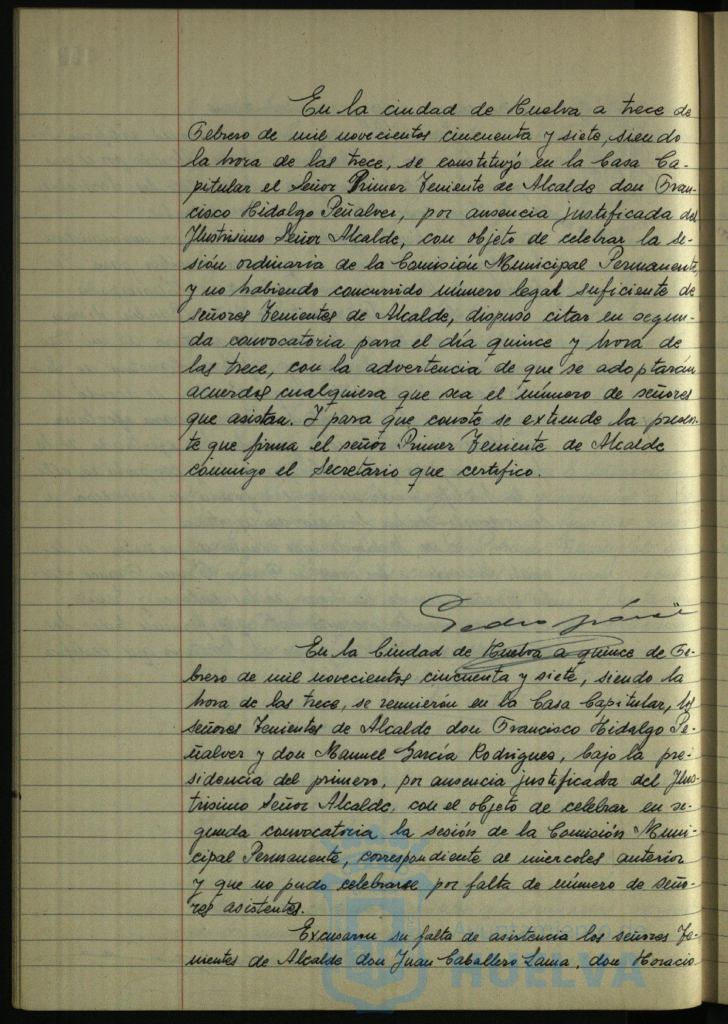 En la ciudad de Huelva a trece de
Febrero de mil novecientos cincuenta y siete, siendo
la hora de las trece, se constituyó en la Casa Ca-
pitular el Señor Primer Teniente de Alcalde don Fran-
cisco Hidalgo Peñalver, por ausencia justificada del
Ilustrisimo Señor Alcalde, con objeto de celebrar la se-
sión ordinaria de la Comisión Municipal Permanente,
y no habiendo concurrido número legal suficiente de
señores Tenientes de Alcalde, dispuso citar en segun-
da convocatoria para el día quince y hora de
las trece, con la advertencia de que se adoptarán
acuerdos cualquiera que sea el número de señores
que asistan. Y para que conste se extiende la presen-
te que firma el señor Primer Teniente de Alcalde
conmigo el Secretario que certifico.
Pedro
En la Ciudad de Huelva a quince de Fe-
brero de mil novecientos cincuenta y siete, siendo la
hora de las trece, se reunieron en la Casa Capitular, los
señores Tenientes de Alcalde don Francisco Hidalgo Pe-
ñalver y don Manuel García Rodrigues, bajo la pre-
sidencia del primero, por ausencia justificada del Ilus-
trisimo Señor Alcalde, con el objeto de celebrar en se-
gunda convocatoria la sesión de la Comisión Muni-
cipal Permanente, correspondiente al miercoles anterior
y que no pudo celebrarse por falta de número de seño-
res asistentes.
Excusaron su falta de asistencia los señores Te-
nientes de Alcalde don Juan Caballero Lama, don Horacio
HUELVA